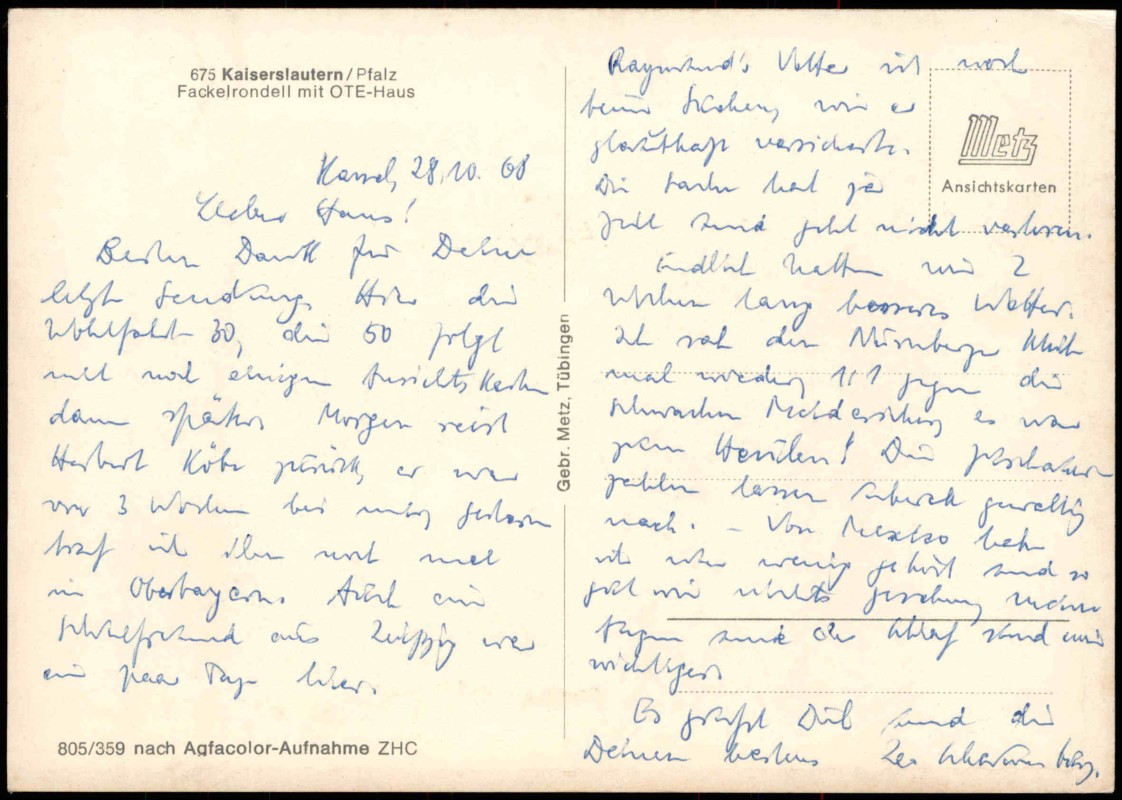 675 Kaiserslautern/Pfalz
Fackelrondell mit OTE-Haus
Kassel, 28.10.68
Lieber Hans!
Besten Dank für Deine
letzte Sendung. Hier die
Wohlfahrt 30, die 50 folgt
mit noch einigen Ansichtskarten
dann später. Morgen reist
Herbert Köbe zurück, er war
vor 3 Wochen bei mir, gestern
traf ich ihn noch mal
in Oberbayern. Auch ein
Schulfreund aus Leipzig war
ein paar Tage hier.
805/359 nach Agfacolor-Aufnahme ZHC
Gebr. Metz, Tübingen
Metz
Ansichtskarten
Raymund's Vetter ist noch
beim Suchen, wie er
glaubhaft versicherte.
Die Sache hat ja
Zeit und geht nicht verloren.
Endlich hatten wir 2
Wochen lang besseres Wetter.
Ich sah den Nürnberger Club
mal wieder, 1:1 gegen die
schwachen es war
zum Heulen! Die Zuschauer
zahlen lassen überall gewaltig
nach. - Von Mexiko habe
ich sehr wenig gehört und so
geht mir nichts
Tagen und der Schlaf sind mir
wichtiger.
Es grüßt Dich und die
Deinen bestens